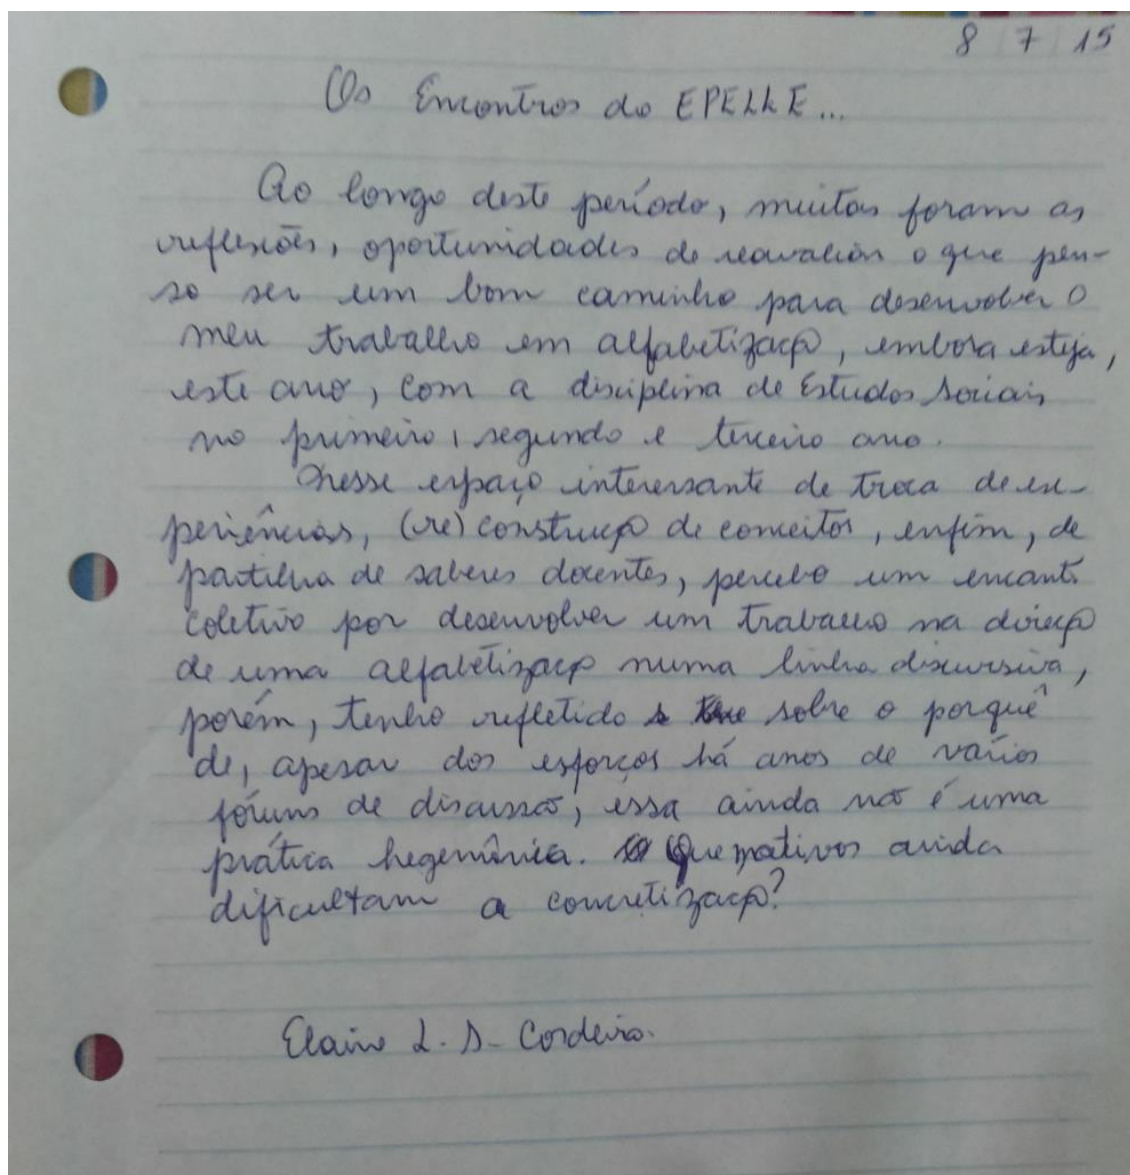 8 7 15
Os Encontros do EPELLE...
Ao longo deste período, muitas foram as
reflexões, oportunidades de reavaliar o que pen-
so ser um bom caminho para desenvolver o
meu trabalho em alfabetização, embora esteja,
este ano, com a disciplina de Estudos Sociais
no primeiro, segundo e terceiro ano.
Nesse espaço interessante de troca de ex-
periências, (re)construção de conceitos, enfim, de
partilha de saberes docentes, percebo um encanto
coletivo por desenvolver um trabalho na direção
de uma alfabetização numa linha discursiva,
porém, tenho refletido sobre o porquê
de, apesar dos esforços há anos de vários
fóruns de discussão, essa ainda não é uma
prática hegemônica. Que motivos ainda
dificultam a concretização?
Elaine L. S. Cordeiro.